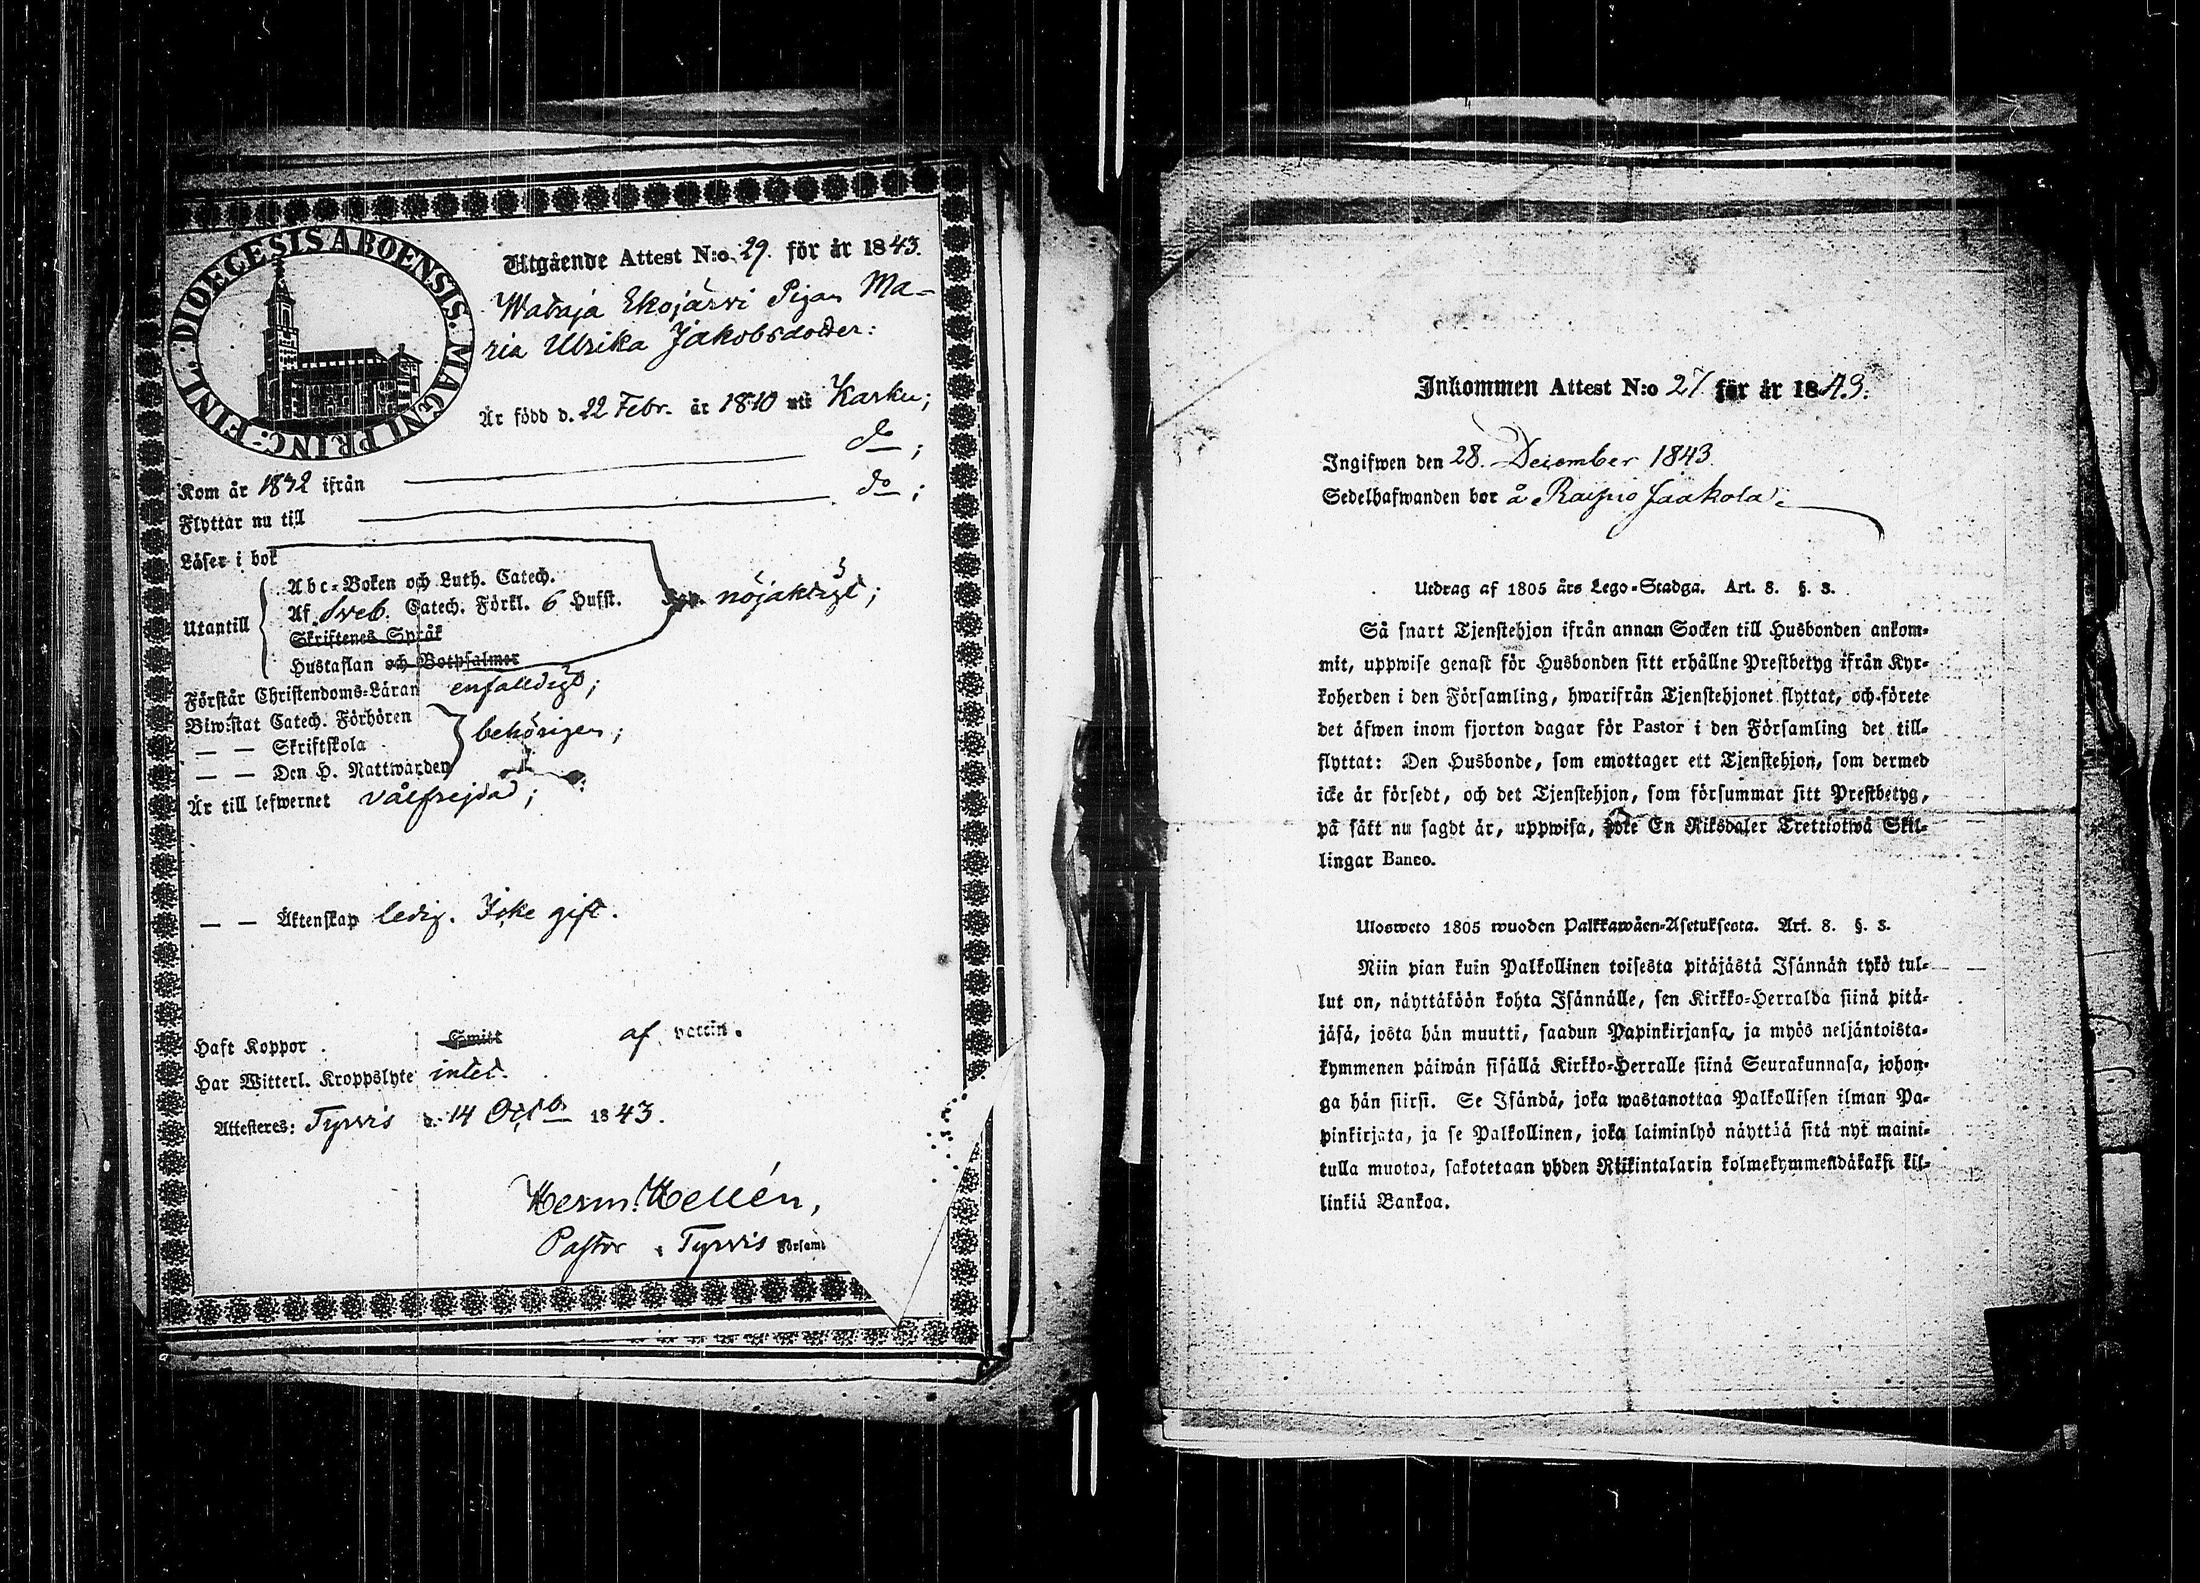 DIOECESIS ABOENSIS. MAGNI PRINC: FINL:
Utgående Attest N:o 29. för år 1843.
Wataja Ekojärvi Pigan Ma-
ria Ulrika Jakobsdotter:
Är född d. 22 Febr. år 1810 uti Karku;
Kom år 1842 ifrån do;
Flyttar nu till do;
Läser i bok
Utantill
Abc-Boken och Luth. Catech.
Af Sveb. Catech. Förkl. 6 Hufst. nöjaktigt;
Skriftenes Språk
Hustaflan och Botpsalmer
Förstår Christendoms-Läran enfalldigt;
Biwistat Catech. Förhören
— — Skriftskola behörigen;
— — Den H. Nattwarden
Är till lefwernet välfrejdad;
— — Äktenskap ledig. Icke gift.
Haft Koppor Smitt af vaccin.
Har Witterl. Kroppslyte intet.
Attesteres: Tyrvis d. 14 Octob 1843.
Herm. Hellén,
Pastor i Tyrvis Församl
Inkommen Attest N:o 27 för år 1843:
Ingifwen den 28. December 1843.
Sedelhafwanden bor å Raipio Jaakola
Utdrag af 1805 års Lego-Stadga. Art. 8. §. 3.
Så snart Tjenstehjon ifrån annan Socken till Husbonden ankom-
mit, uppwise genast för Husbonden sitt erhållne Prestbetyg ifrån Kyr-
koherden i den Församling, hwarifrån Tjenstehjonet flyttat, och förete
det äfwen inom fjorton dagar för Pastor i den Församling det till-
flyttat: Den Husbonde, som emottager ett Tjenstehjon, som dermed
icke är försedt, och det Tjenstehjon, som försummar sitt Prestbetyg,
på sätt nu sagdt är, uppwisa, böte En Riksdaler Trettiotwå Skil-
lingar Banco.
Ulosweto 1805 wuoden Palkkawäen-Asetuksesta. Art. 8. §. 3.
Niin pian kuin Palkollinen toisesta pitäjästä Isännän tykö tul-
lut on, näyttäköön kohta Isännälle, sen Kirkko-Herralda siinä pitä-
jäsä, josta hän muutti, saadun Papinkirjansa, ja myös neljäntoista-
kymmenen päiwän sisällä Kirkko-Herralle siinä Seurakunnasa, johon-
ga hän siirsi. Se Isändä, joka wastanottaa Palkollisen ilman Pa-
pinkirjata, ja se Palkollinen, joka laiminlyö näyttää sitä nyt maini-
tulla muotoa, sakotetaan yhden Riikintalarin kolmekymmendäkaksi kil-
linkiä Bankoa.